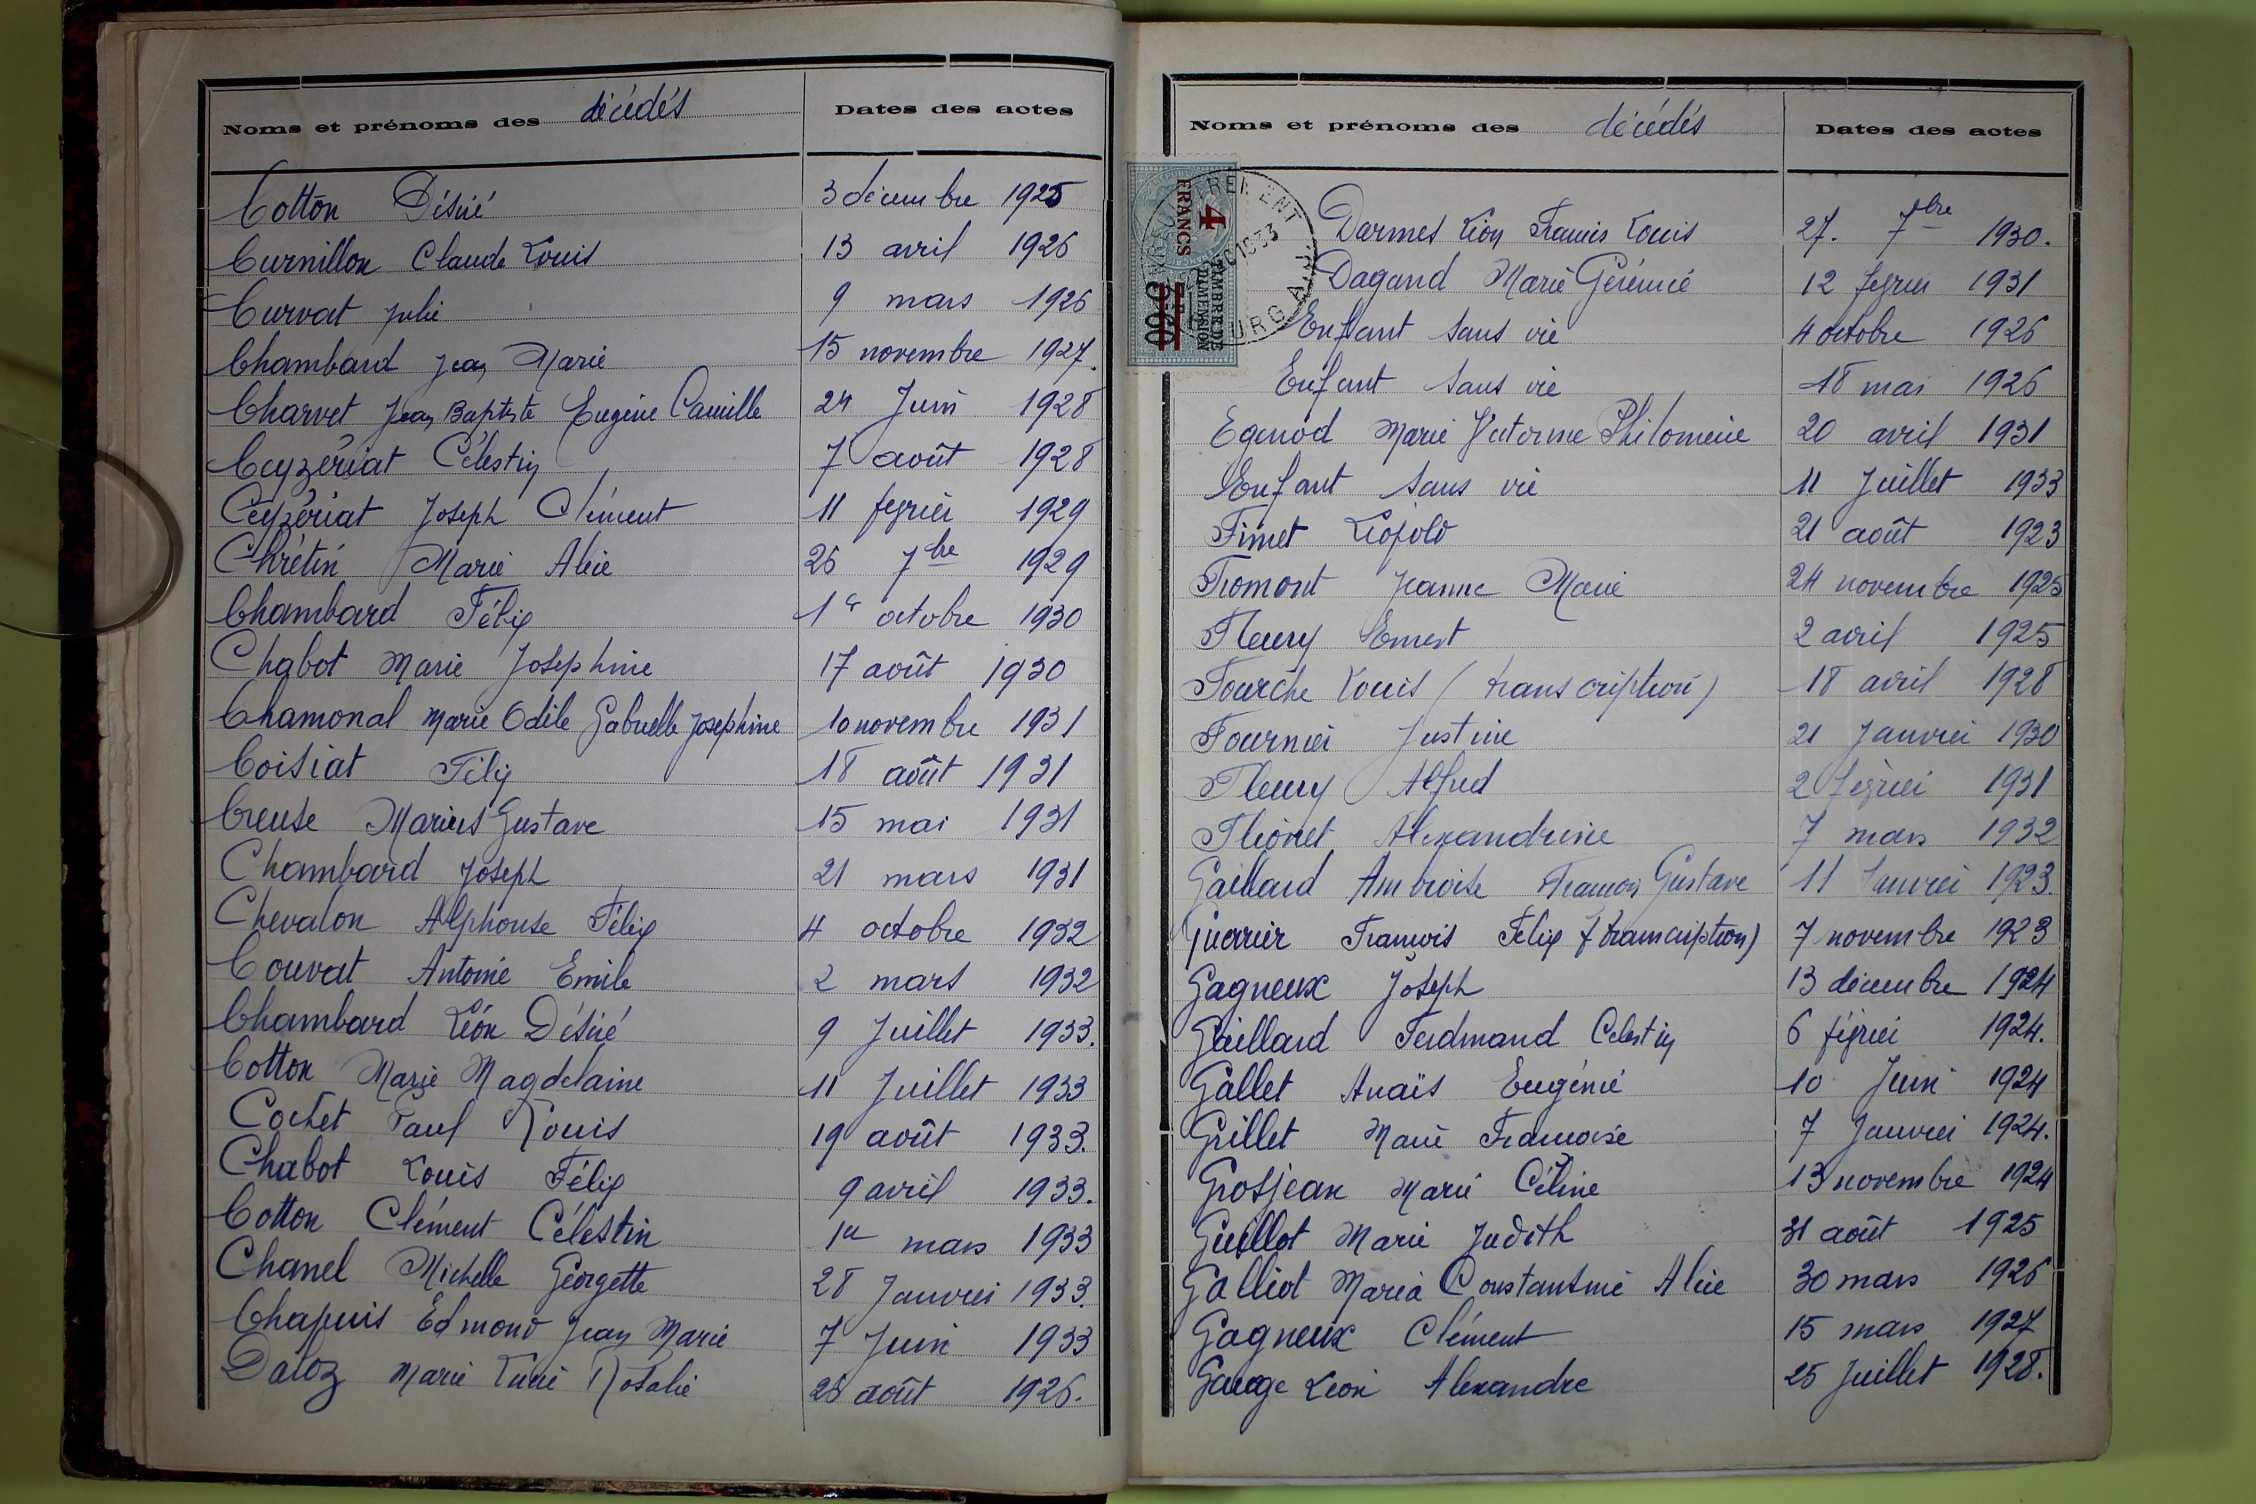 Noms et prénoms des décédés Dates des actes
Cotton Désiré 3 décembre 1925
Curnillon Claude Louis 13 avril 1926
Curvat Julie 9 mars 1926
Chambard Jean Marie 15 novembre 1927.
Charvet Jean Baptiste Eugène Camille 24 Juin 1928
Ceyzériat Célestin 7 août 1928
Ceyzériat Joseph Clément 11 février 1929
Chrétin Marie Alice 26 7bre 1929
Chambard Félix 1er octobre 1930
Chabot Marie Josephine 17 août 1930
Chamonal Marie Odile Gabrielle Josephine 10 novembre 1931
Coisiat Félix 18 août 1931
Creuse Marius Gustave 15 mai 1931
Chambard Joseph 21 mars 1931
Chevalon Alphonse Félix 4 octobre 1932
Couvat Antoine Emile 2 mars 1932
Chambard Léon Désiré 9 Juillet 1933.
Cotton Marie Magdelaine 11 Juillet 1933
Cochet Paul Louis 19 août 1933.
Chabot Louis Félix 9 avril 1933.
Cotton Clément Célestin 1er mars 1933
Chanel Michelle Georgette 28 Janvier 1933.
Chapuis Edmond Jean Marie 7 Juin 1933
Daloz Marie Rosalie 28 août 1926.
Noms et prénoms des décédés Dates des actes
4 FRANCS
TIMBRE DE DIMENSION
3F60
1933
Darmes Léon Francis Louis 27. 7bre 1930.
Dagand Marie 12 février 1931
Enfant sans vie 4 octobre 1926
Enfant sans vie 18 mai 1926
Egenod Marie Victorine Philomène 20 avril 1931
Enfant sans vie 11 Juillet 1933
Fimet Léopold 21 août 1923
Fromont Jeanne Marie 24 novembre 1925
Fleury Ernest 2 avril 1925
Fourche Louis (transcription) 18 avril 1928
Fournier Justine 21 Janvier 1930
Fleury Alfred 2 février 1931
Alexandrine 7 mars 1932
Gaillard Ambroise François Gustave 11 Janvier 1923.
Guerrier François Félix (transcription) 7 novembre 1923
Gagneux Joseph 13 décembre 1924
Gaillard Ferdinand Célestin 6 février 1924.
Gallet Anaïs Eugénie 10 Juin 1924
Grillet Marie Françoise 7 Janvier 1924.
Grosjean Marie Céline 13 novembre 1924
Guillot Marie Judith 31 août 1925
Galliot Maria Constantine Alice 30 mars 1926
Gagneux Clément 15 mars 1927
Gauge Léon Alexandre 25 Juillet 1928.